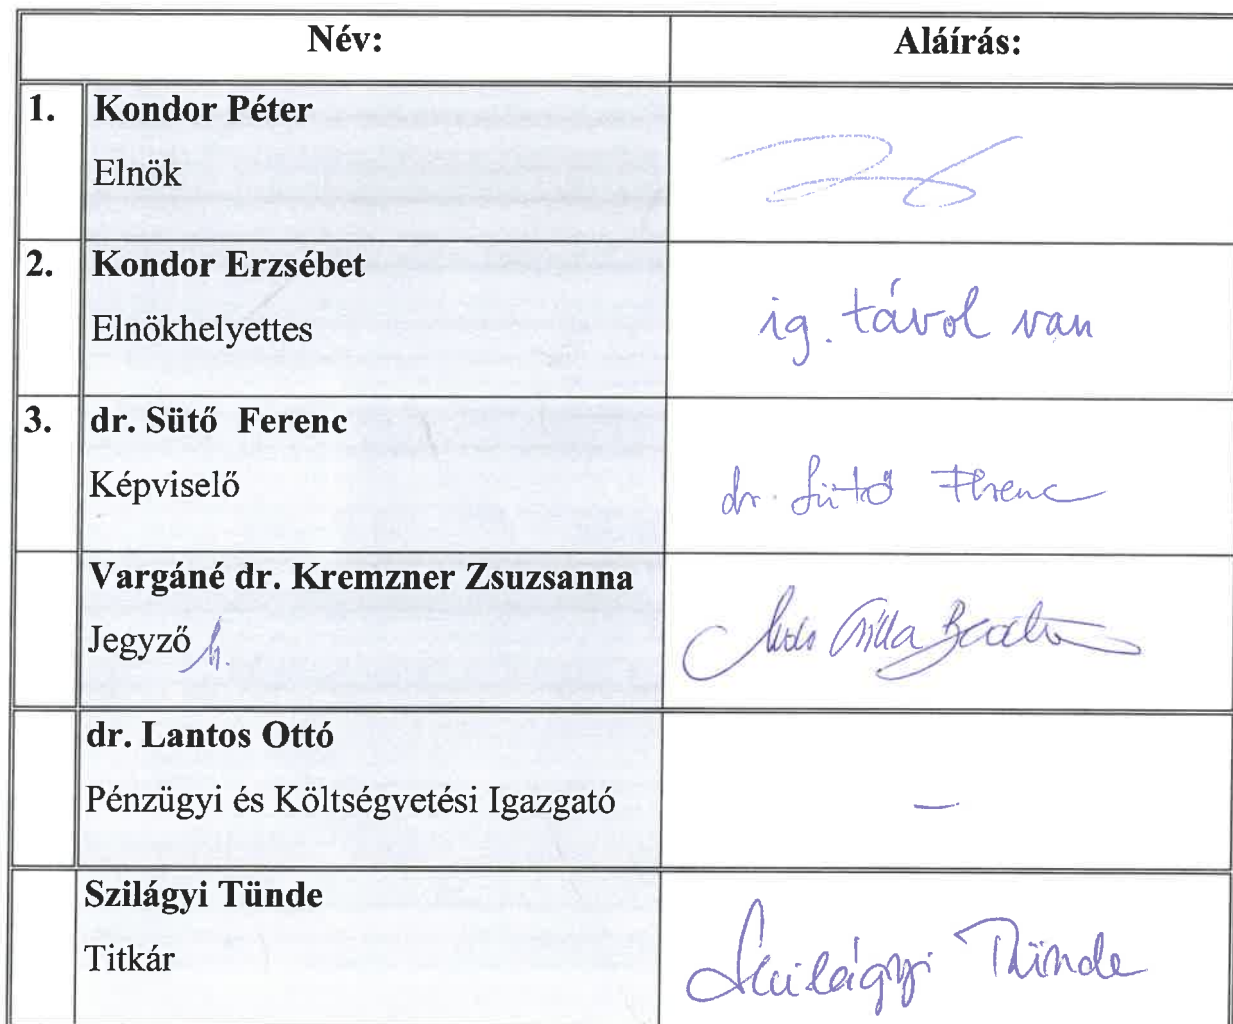 Név: Aláírás:
1. Kondor Péter
Elnök
2. Kondor Erzsébet
Elnökhelyettes
ig. távol van
3. dr. Sütő Ferenc
Képviselő
dr. Sütő Ferenc
Vargáné dr. Kremzner Zsuzsanna
Jegyző h.
Csilla
dr. Lantos Ottó
Pénzügyi és Költségvetési Igazgató
–
Szilágyi Tünde
Titkár
Szilágyi Tünde